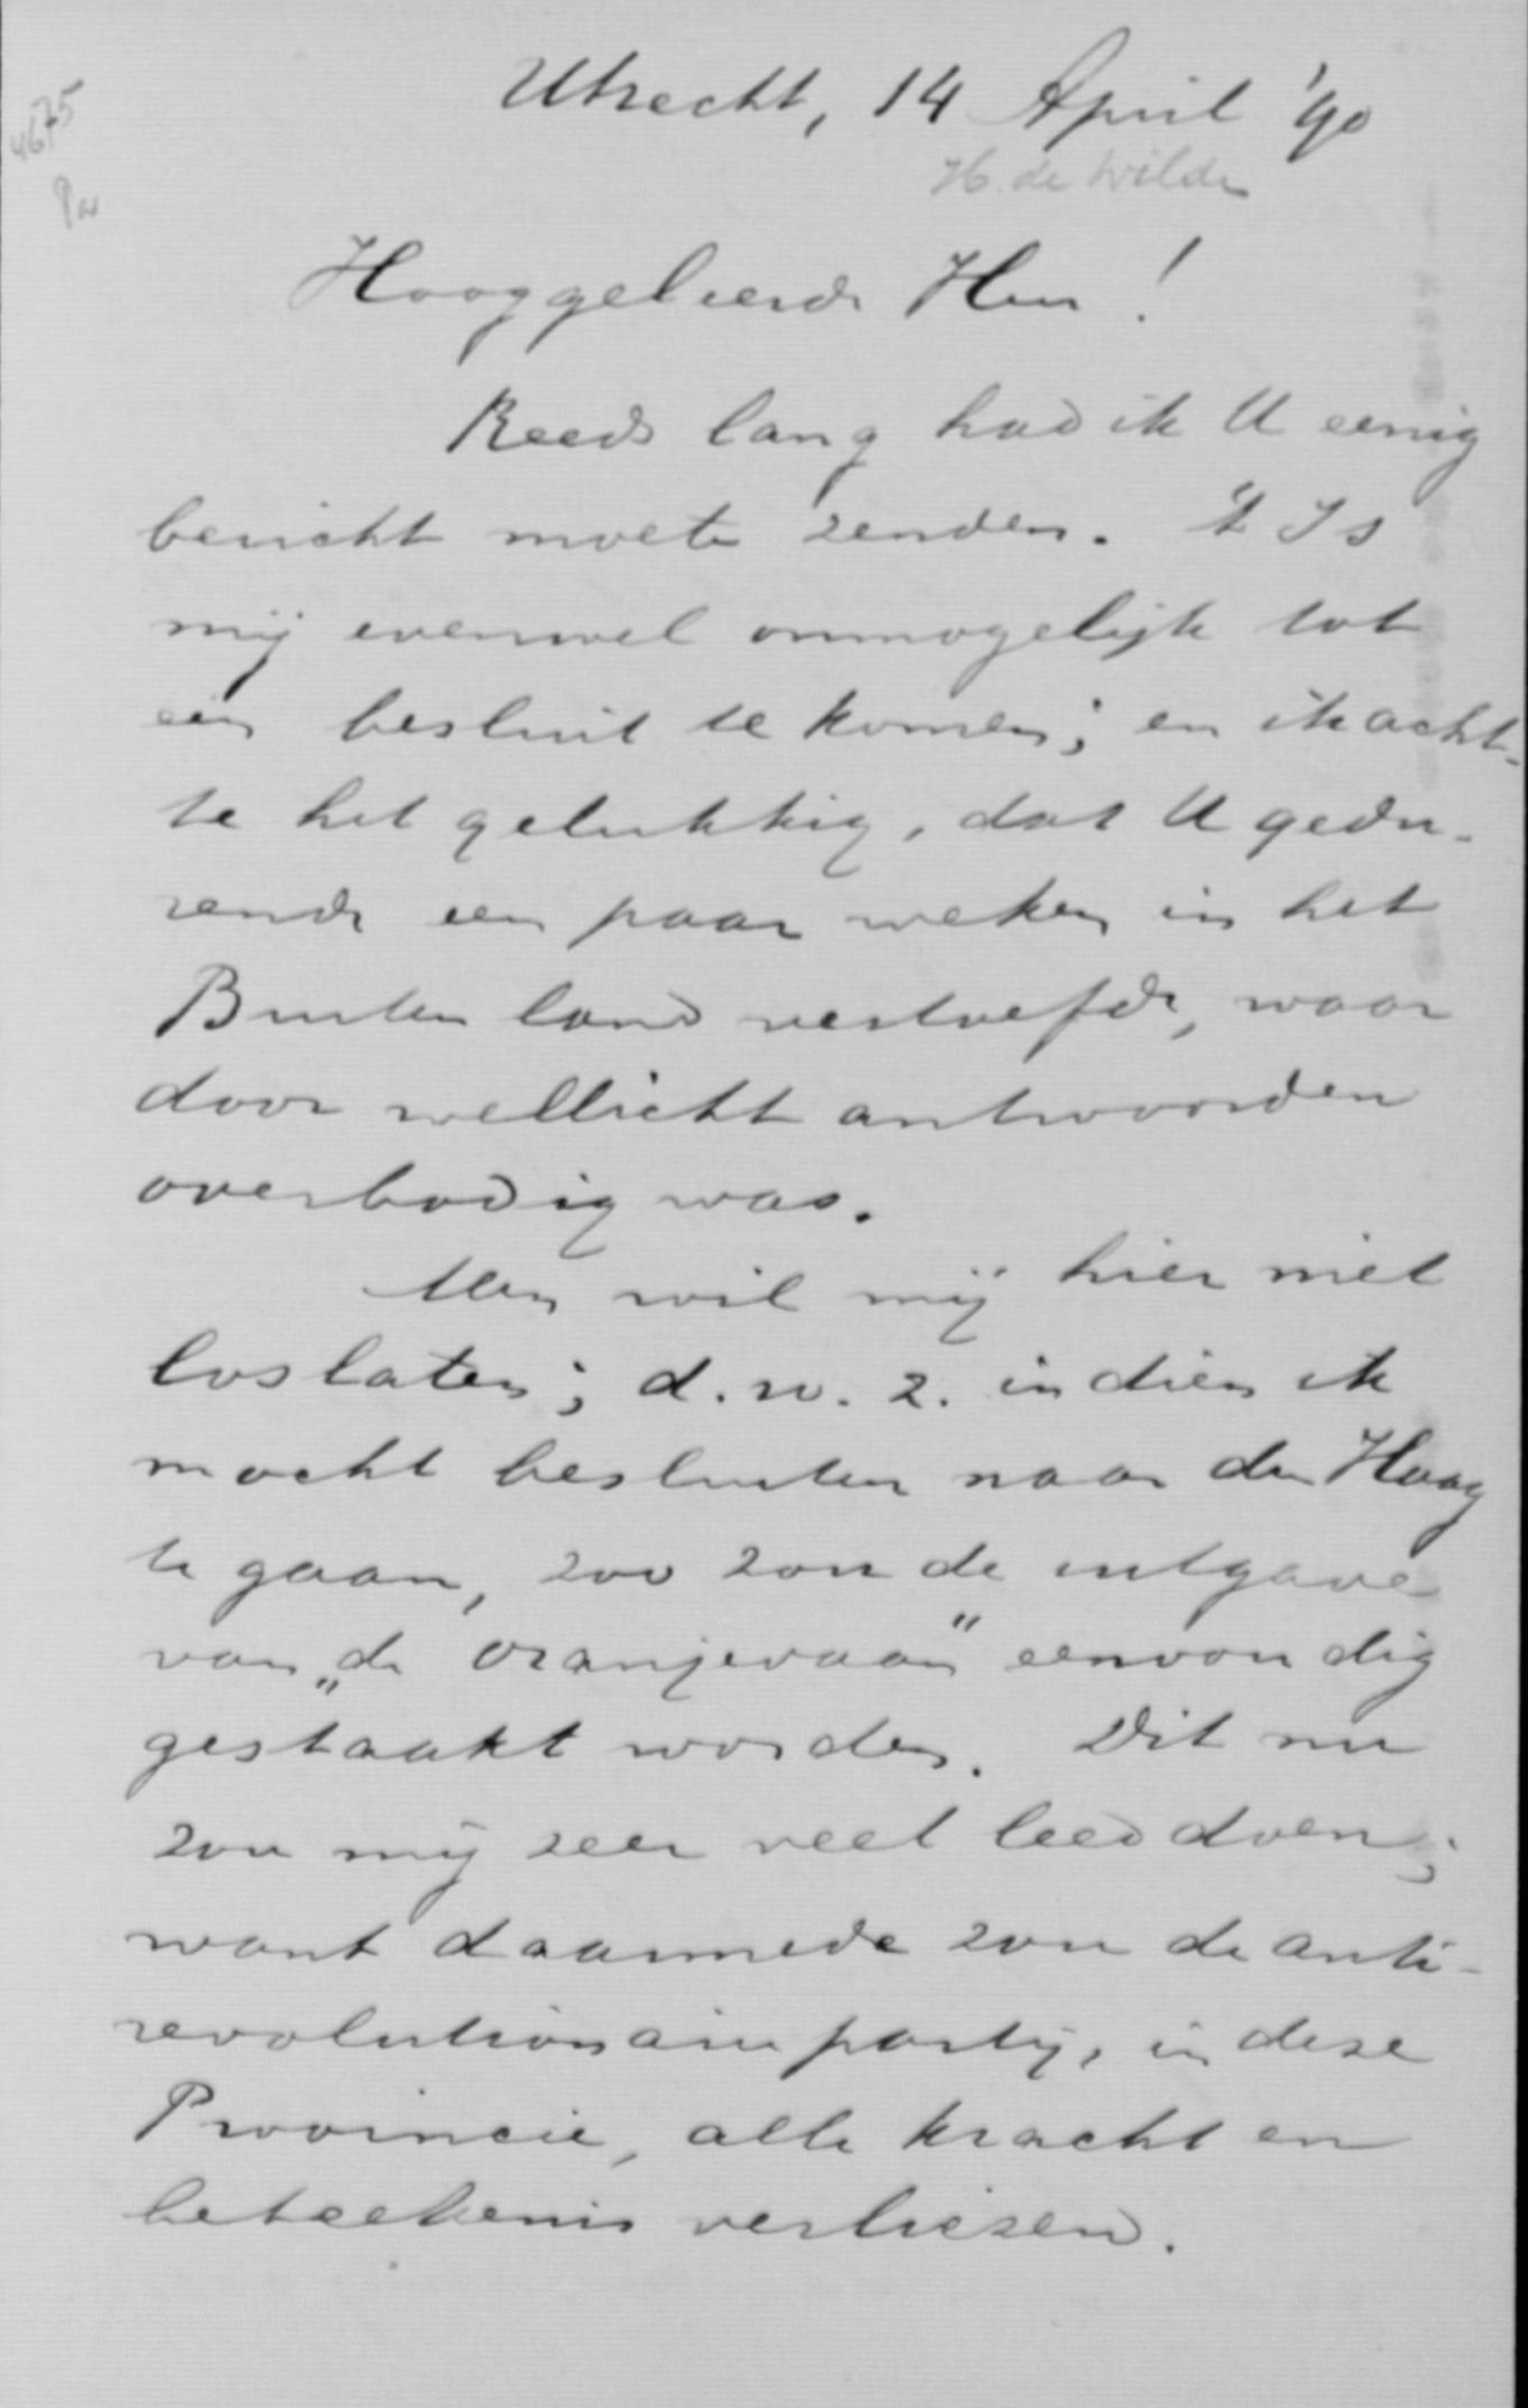 Utrecht, 14 April '90
4675
H. de Wilde
Hooggeleerde Heer!
Reeds lang had ik U eenig
bericht moeten zenden. 't Is
mij evenwel onmogelijk tot
een besluit te komen; en ik acht-
te het gelukkig, dat U gedu-
rende een paar weken in het
Buitenland vertoefde, waar
door wellicht antwoorden
overbodig was.
Men wil mij hier niet
loslaten; d.w.z. indien ik
mocht besluiten naar den Haag
te gaan, zoo zou de uitgave
van „de Oranjevaan" eenvoudig
gestaakt worden. Dit nu
zou mij zeer veel leed doen;
want daarmede zou de anti-
revolutionaire partij, in deze
Provincie, alle kracht en
beteekenis verliezen.